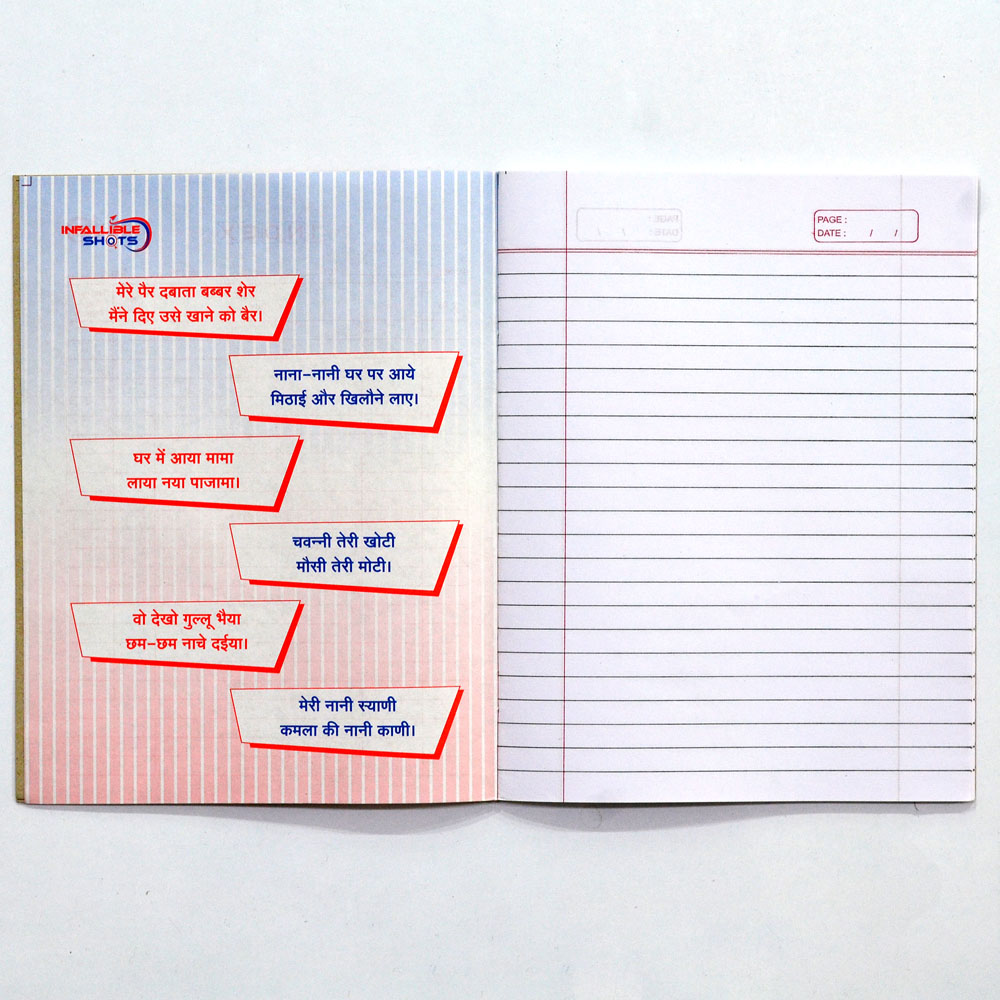 INFALLIBLE
SHOTS
मेरे पैर दबाता बब्बर शेर
मैंने दिए उसे खाने को बैर।
नाना-नानी घर पर आये
मिठाई और खिलौने लाए।
घर में आया मामा
लाया नया पाजामा।
चवन्नी तेरी खोटी
मौसी तेरी मोटी।
वो देखो गुल्लू भैया
छम-छम नाचे दईया।
मेरी नानी स्याणी
कमला की नानी काणी।
PAGE :
DATE : / /